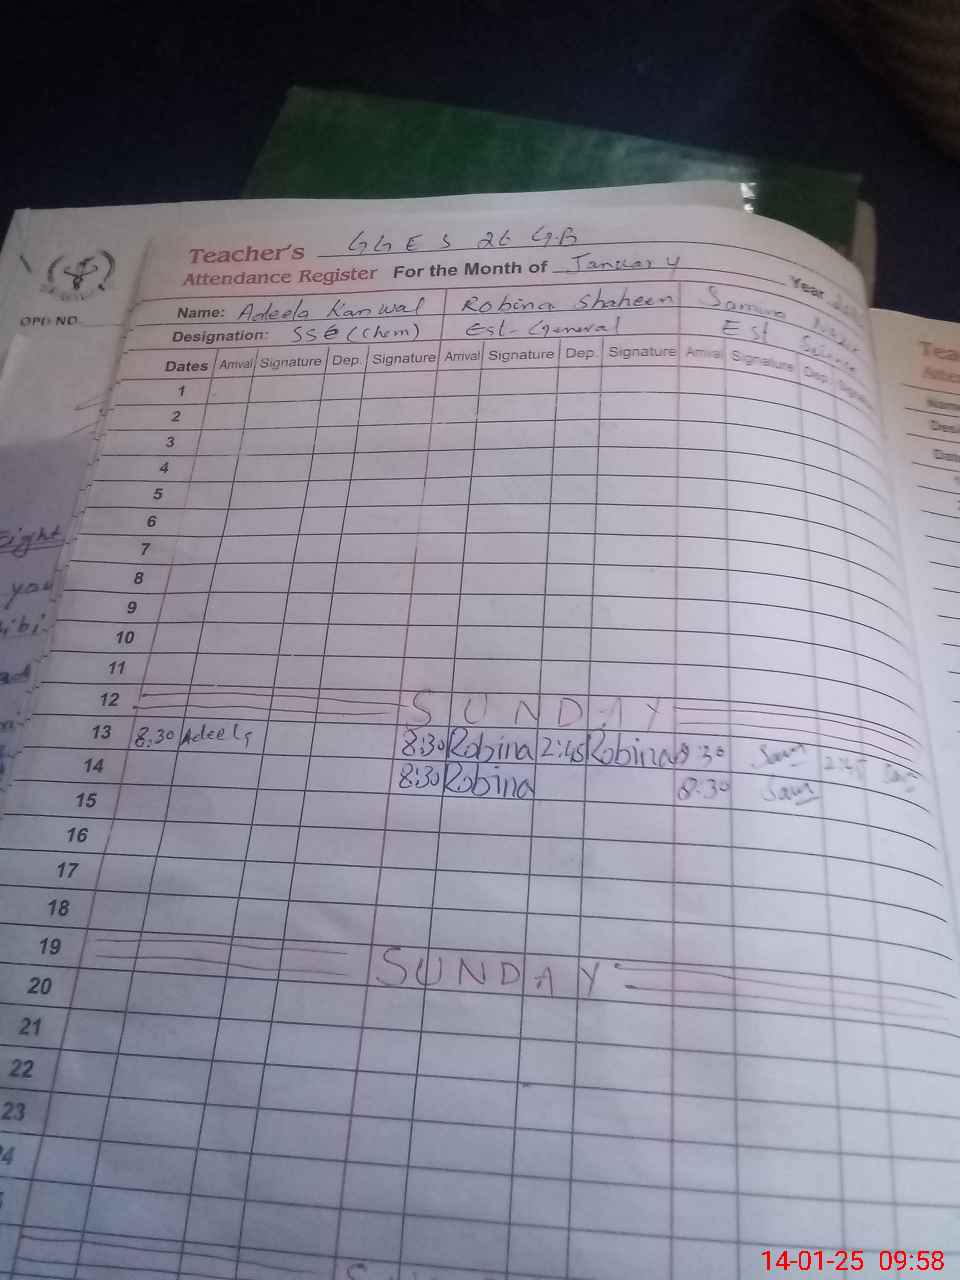 Teacher's GGES 26 G.B
Attendance Register For the Month of January Year
OPD NO.
Name: Adeela Kanwal Robina Shaheen
Designation: SSE (Chem) Est-General Est Science
Dates Arrival Signature Dep. Signature Arrival Signature Dep. Signature Arrival Signature Dep. Signature
1
2
3
4
5
6
7
8
9
10
11
12 SUNDAY
13 8:30 Adeela 8:30 Robina 2:45 Robina 8:30 Sam 2:45 Sam
14 8:30 Robina 8:30 Sam
15
16
17
18
19 SUNDAY
20
21
22
23
you
14-01-25 09:58